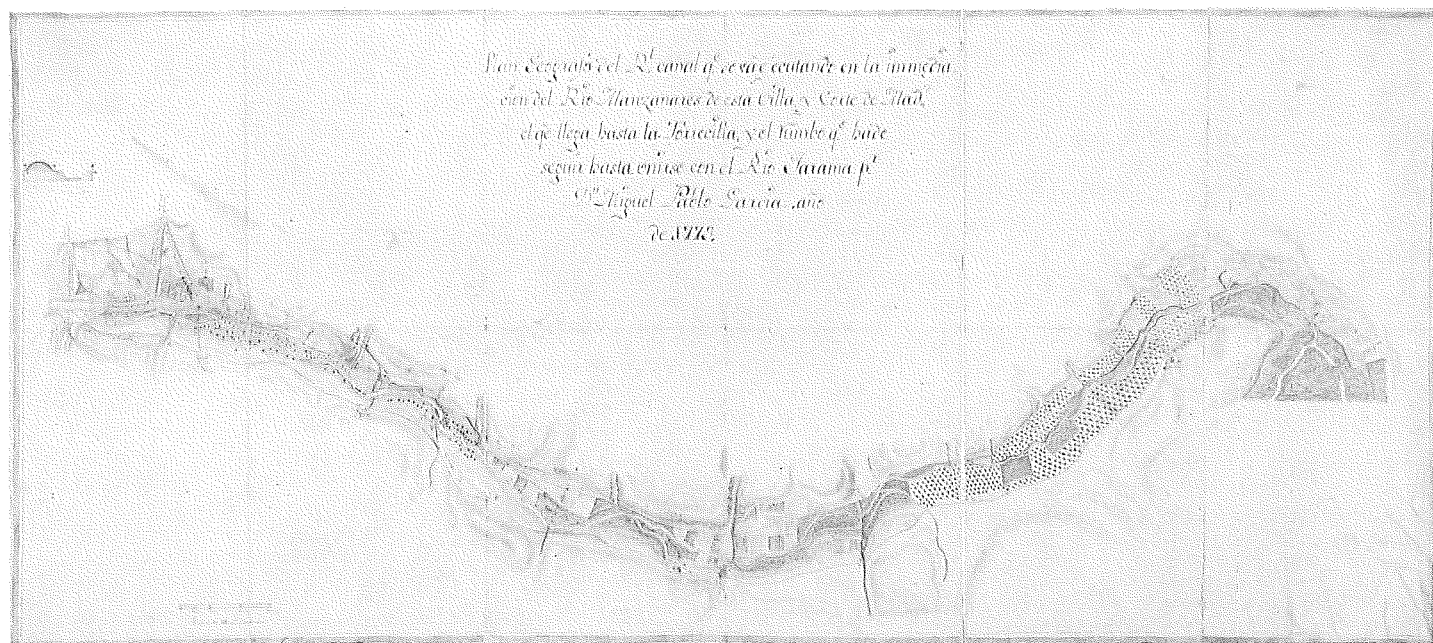 Plan Geografic del Rl canal qe se va executando en la inmedià
cion del Rio Manzanares de esta Villa, y Corte de Mad,
el qe llega hasta la Torrecilla, y el rumbo qe hade
seguir hasta unirse con el Rio Xarama pr
Dn Miguel Pablo Garcia año
de